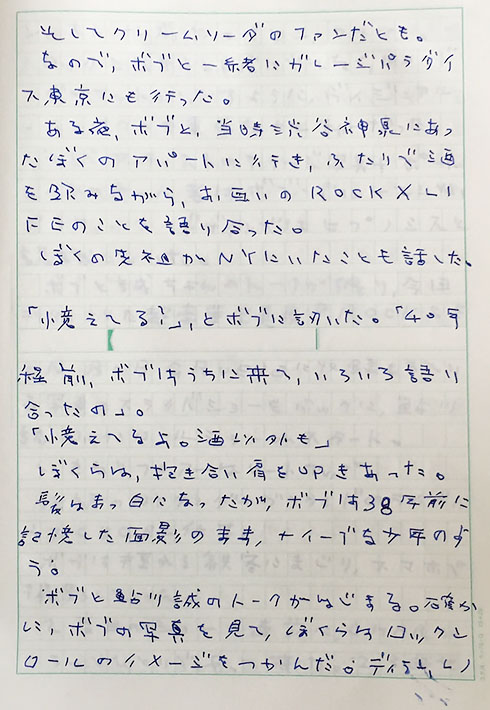 そしてクリームソーダのファンだとも。
なので、ボブと一緒にガレージパラダイ
ス東京にも行った。
ある夜、ボブと、当時渋谷神泉にあっ
たぼくのアパートに行き、ふたりで酒
を飲みながら、お互いのROCK×LI
FEのことを語り合った。
ぼくの先祖がNYにいたことも話した。
「憶えてる?」、とボブに訊いた。「40年
前、ボブはうちに来て、いろいろ語り
合ったの」。
「憶えてるよ。酒以外も」
ぼくらは、抱き合い肩をUPきあった。
髪はまっ白になったが、ボブは38年前に
記憶した面影のまま、ナイーブな少年のよ
う。
ボブと鮎川誠のトークがはじまる。確か
に、ボブの写真を見て、ぼくらはロックン
ロールのイメージをつかんだ。